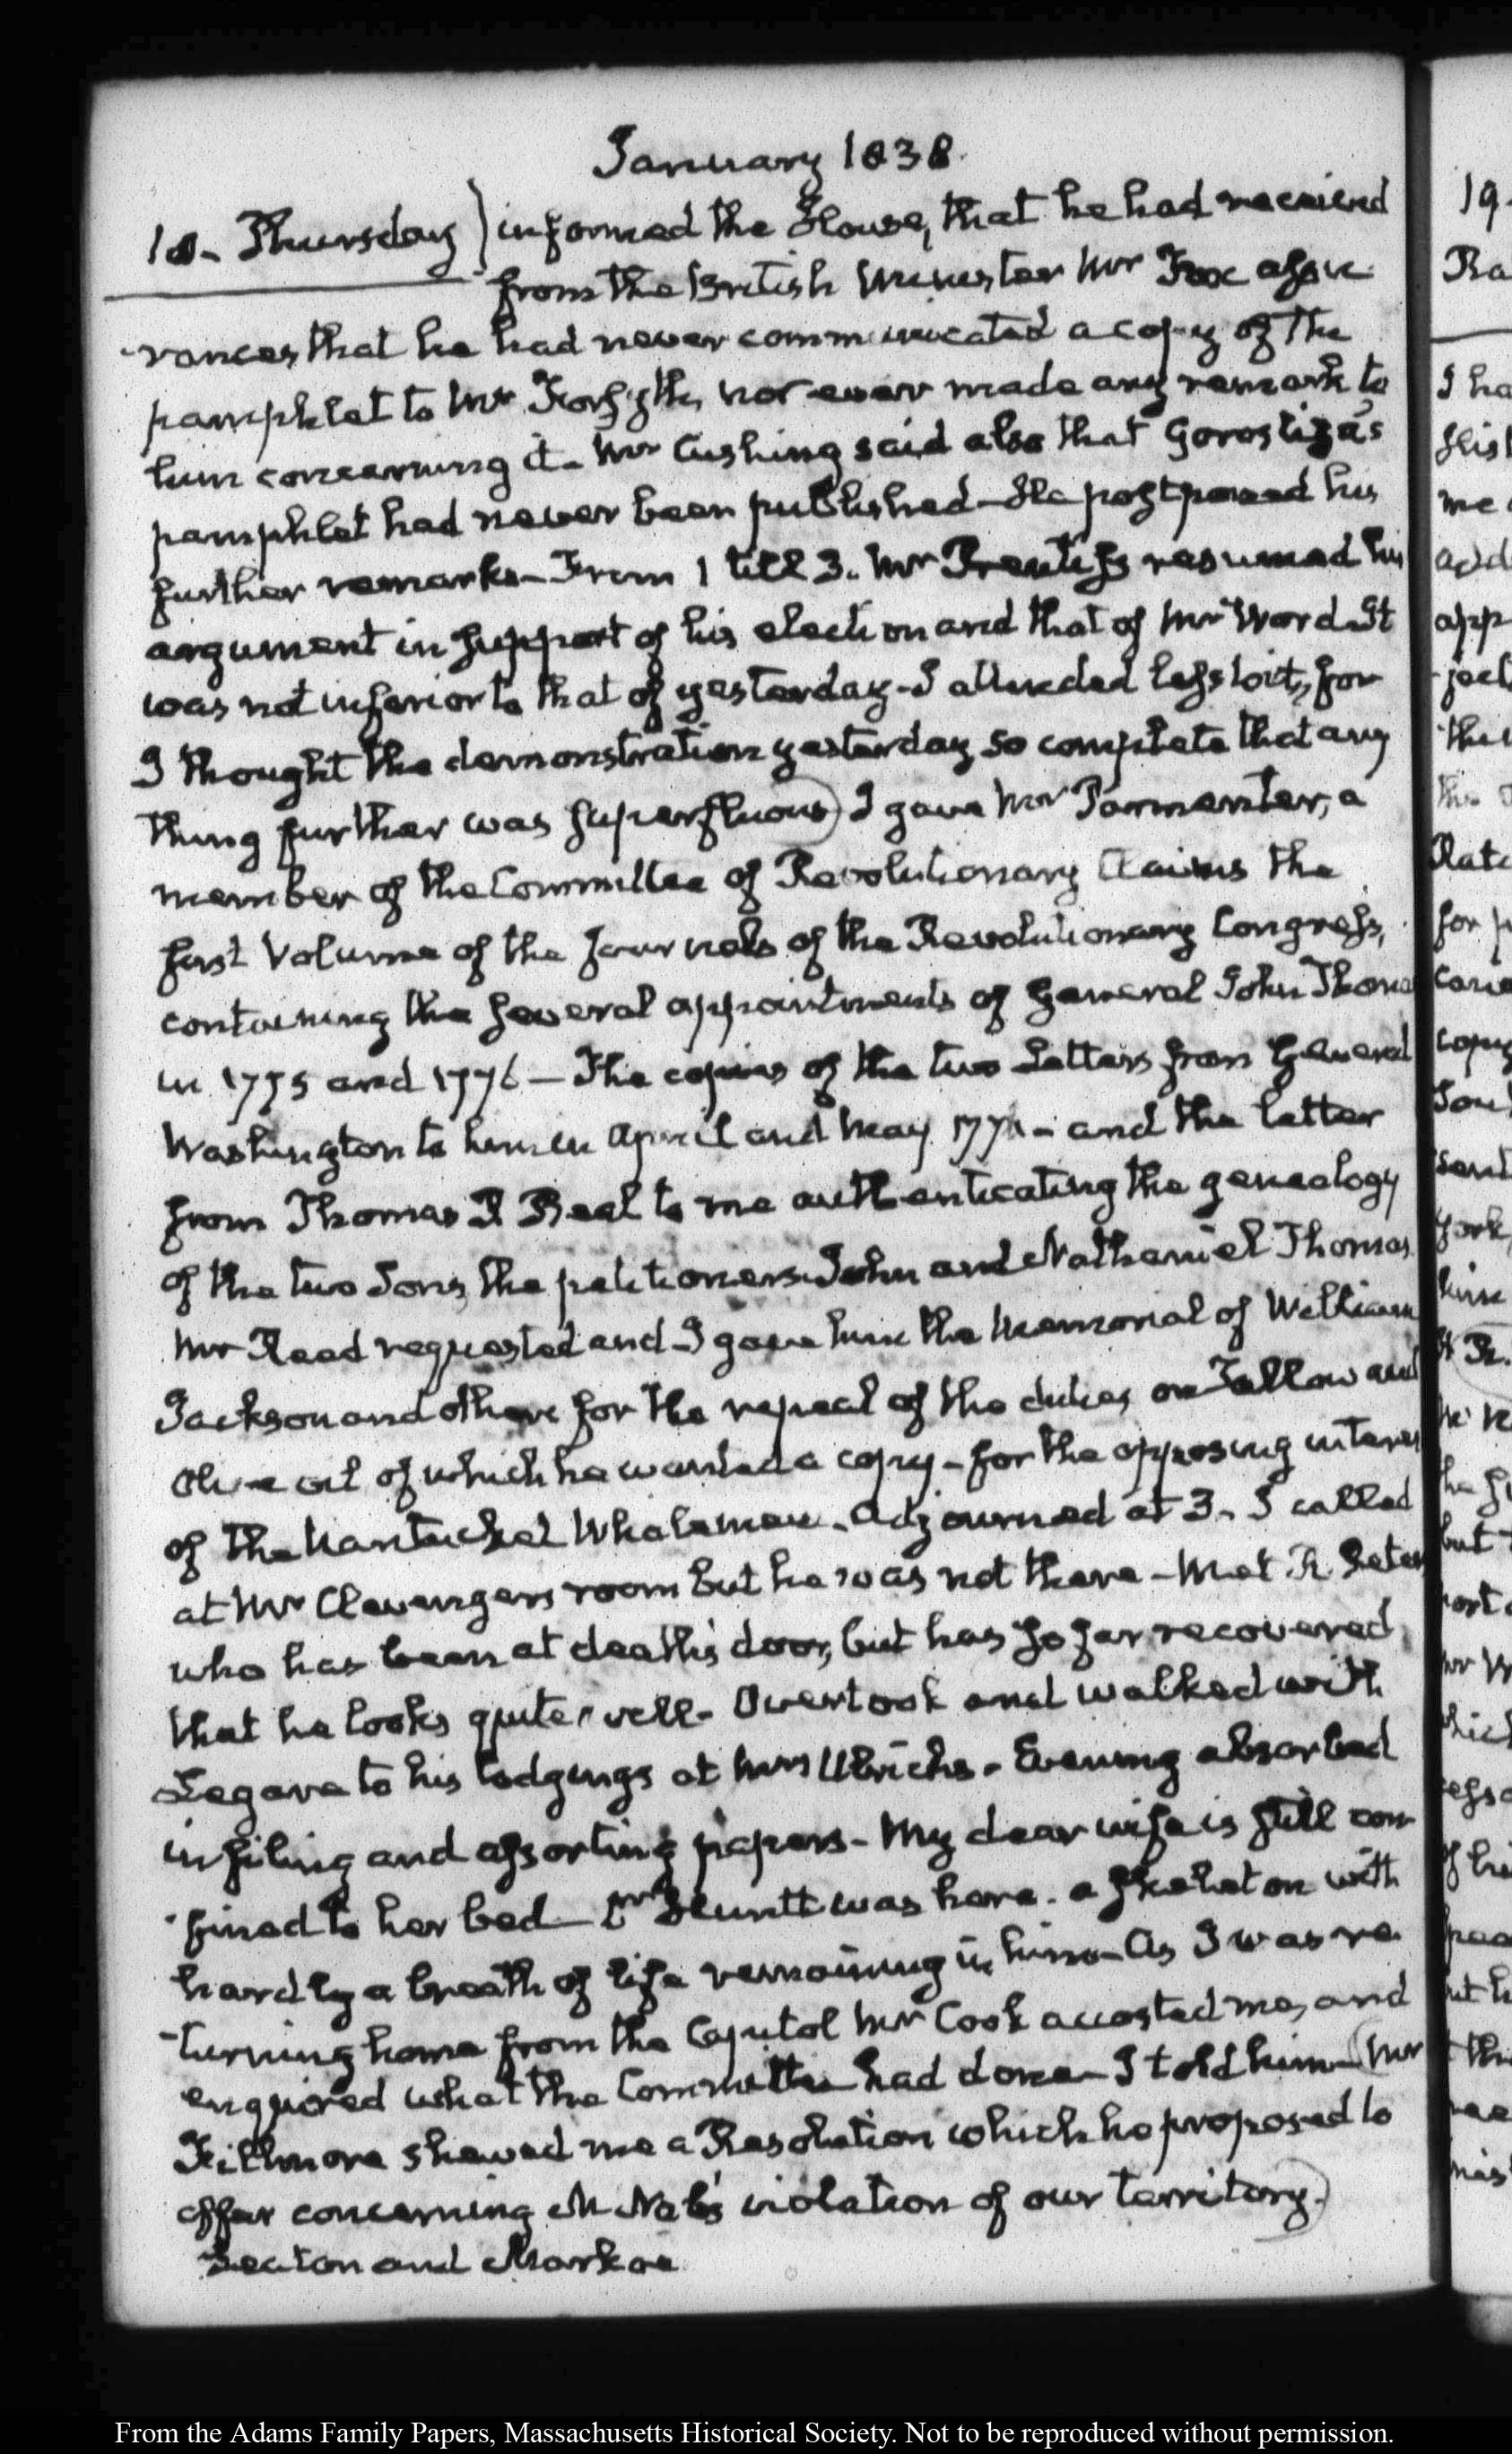 January 1838.
18. Thursday } informed the House, that he had received
from the British Minister Mr Fox assu
-rances that he had never communicated a copy of the
pamphlet to Mr Forsyth, nor ever made any remark to
him concerning it. Mr Cushing said also that Gorostiza's
pamphlet had never been published. He postponed his
further remarks. From 1 till 3. Mr Prentiss resumed his
argument in support of his election and that of Mr Word. It
was not inferior to that of yesterday. I attended less to it, for
I thought the demonstration yesterday so complete that any
thing further was superfluous) I gave Mr Parmenter, a
member of the Committee of Revolutionary Claims the
first Volume of the Journals of the Revolutionary Congress,
containing the several appointments of General John Thomas
in 1775 and 1776 — The copies of the two Letters from General
Washington to him in April and May 1776 - and the letter
from Thomas P Beal to me authenticating the genealogy
of the two Sons, the petitioners John and Nathaniel Thomas
Mr Reed requested and I gave him the Memorial of William
Jackson and others for the repeal of the duties on Tallow and
Olive oil of which he wanted a copy - for the opposing interest
of the Nantucket Whalemen. Adjourned at 3. I called
at Mr Clevengers room but he was not there - Met R. Peter
who has been at death's door, but has so far recovered
that he looks quite well. Overtook and walked with
Legare to his lodgings at Mrs Ulrichs. Evening absorbed
in filing and assorting papers - My dear wife is still con
-fined to her bed — Dr Huntt was here. a skeleton with
hardly a breath of life remaining in him. As I was re
-turning home from the Capitol Mr Cook accosted me, and
enquired what the Committee had done. I told him (Mr
Fillmore shewed me a Resolution which he proposed to
offer concerning McNab's violation of our territory.)
Seaton and Markoe
From the Adams Family Papers, Massachusetts Historical Society. Not to be reproduced without permission.